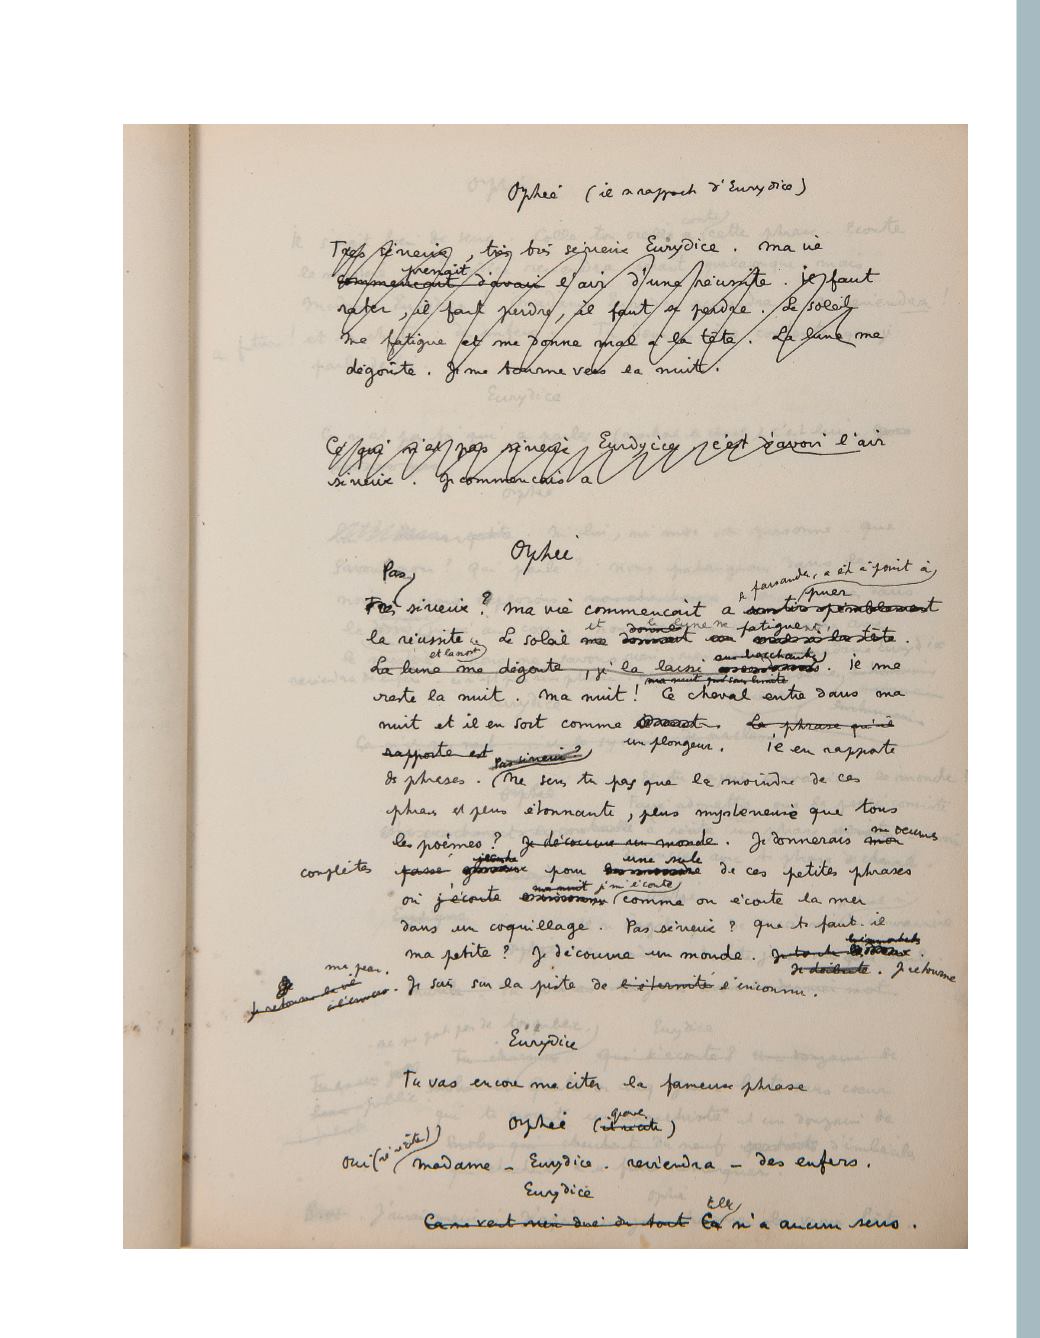 Orphée (il se rapproche d'Eurydice)
Très sérieux, très très sérieux Eurydice. Ma vie
prenait
commençait d'avoir l'air d'une réussite. Il faut
rater, il faut perdre, il faut se perdre. Le soleil
me fatigue et me donne mal à la tête. La lune me
dégoûte. Je me tourne vers la nuit.
Ce qui n'est pas sérieux Eurydice c'est d'avoir l'air
sérieux. Je commençais à
Orphée
Pas
se faisander, a été à point à
Très sérieux? Ma vie commençait a puer
et la lune me fatiguent
la réussite. Le soleil me donnent mal à la tête.
et la mort
aux bacchantes
La lune me dégoûte, j'ai la laissé. Il me
ma nuit
reste la nuit. Ma nuit! Ce cheval entre dans ma
nuit et il en sort comme La phrase qu'il
un plongeur. Il en rapporte
rapporte est Pas sérieux?
des phrases. Ne sens tu pas que la moindre de ces
phrases est plus étonnante, plus mystérieuse que tous
les poèmes? Je découvre un monde. Je donnerais mon
mes œuvres
une seule
complètes pour de ces petites phrases
ma nuit je m'écoute
où j'écoute comme on écoute la mer
dans un coquillage. Pas sérieux? Que te faut-il
ma petite? Je découvre un monde. Je
Je retourne
ma peau.
Je suis sur la piste de l'éternité l'inconnu.
Eurydice
Tu vas encore me citer la fameuse phrase
grave
Orphée (il récite)
Oui (il récite) Madame – Eurydice. reviendra – des enfers.
Eurydice
Elle
Ça ne veut rien dire du tout Ça n'a aucun sens.